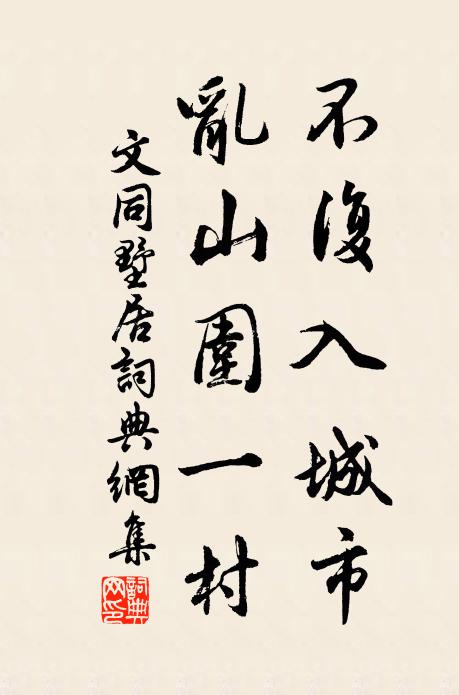 不復入城市
亂山圍一村
文同墅居詞典網集
詞典網印